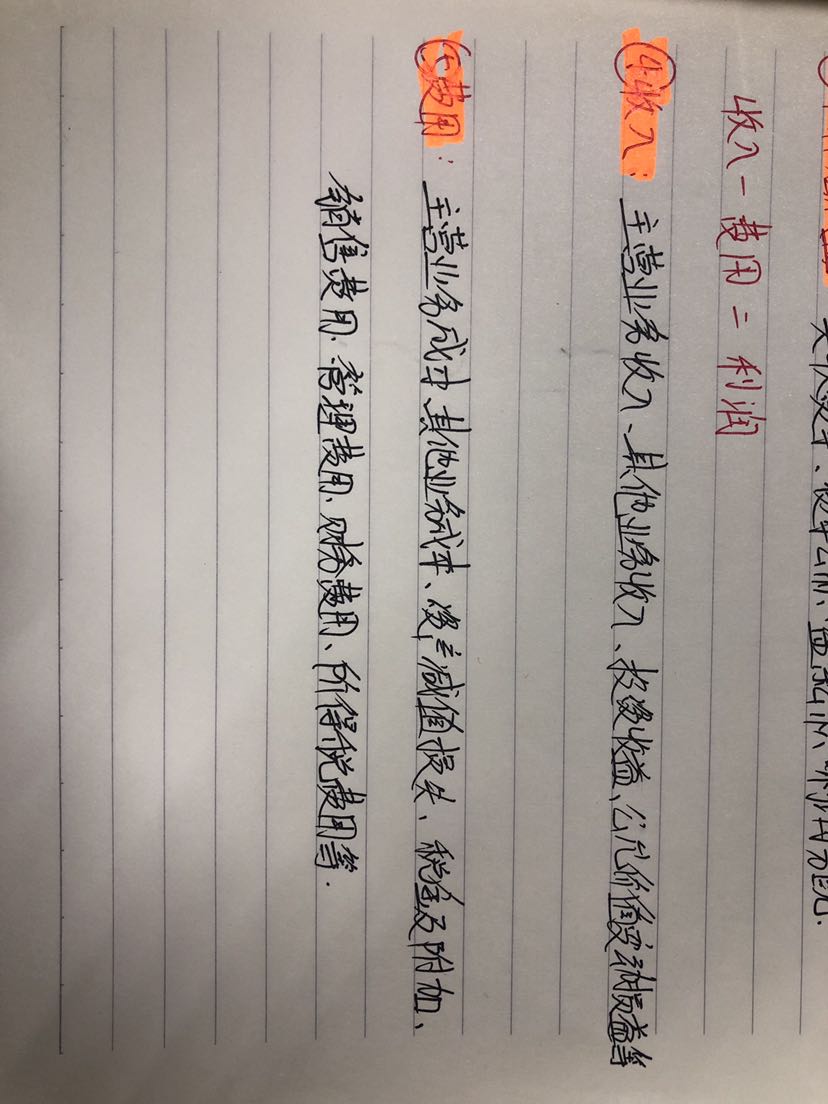 实收资本、资本公积、盈余公积、未分配利润.
收入-费用=利润
④收入:主营业务收入、其他业务收入、投资收益、公允价值变动损益等
⑤费用:主营业务成本、其他业务成本、资产减值损失、税金及附加、
销售费用、管理费用、财务费用、所得税费用等.